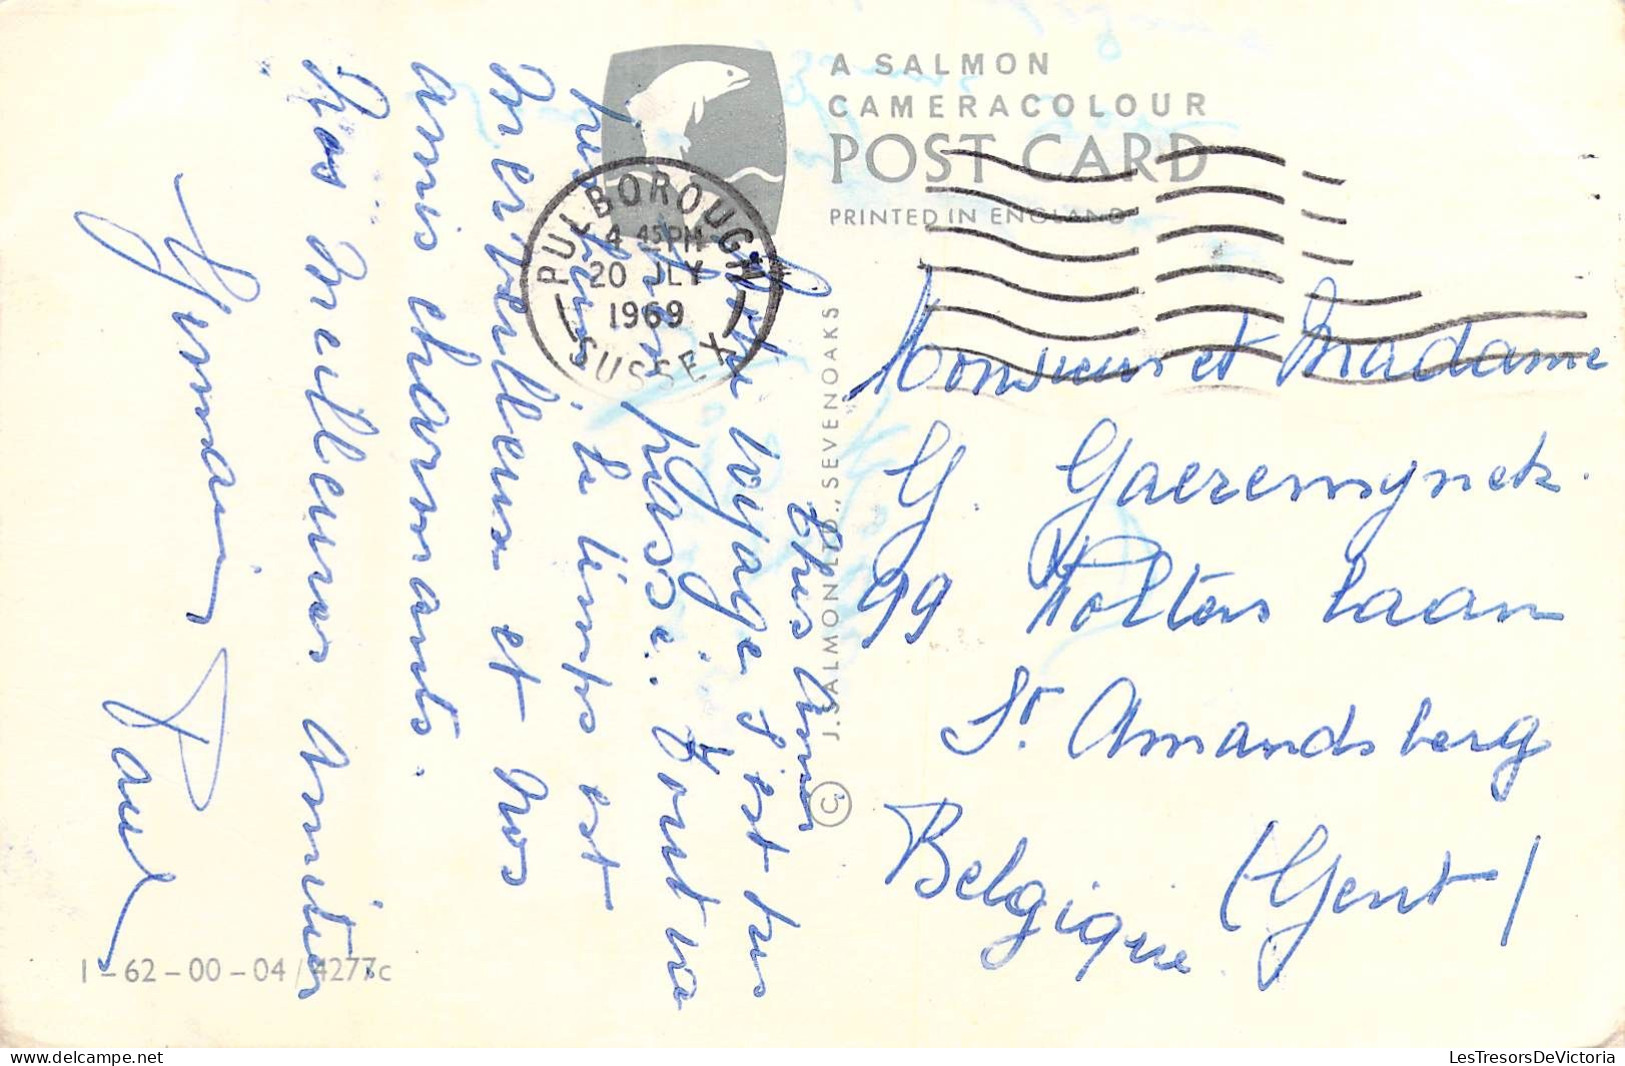 A SALMON
CAMERACOLOUR
POST CARD
PRINTED IN ENGLAND
PULBOROUGH
4 45PM
20 JLY
1969
SUSSEX
Chers Amis
Notre voyage s'est très
bien passé. Tout va
pour le mieux, le temps est
merveilleux et nos
amis charmants.
Nos meilleures Amitiés
Germain Paul
© J. SALMON LTD., SEVENOAKS
Monsieur et Madame
G. Gaeremynck.
99 Potters laan
St. Amandsberg
(Gent)
Belgique
1-62-00-04/4277c
LesTresorsDeVictoria
www.delcampe.net